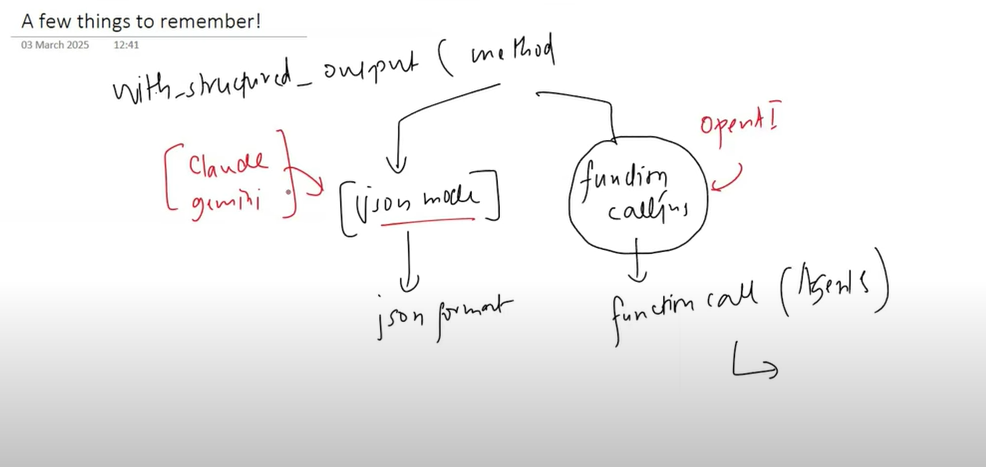 A few things to remember!
03 March 2025 12:41
with_structured_output ( method
OpenAI
[ Claude
gemini ]
[json mode]
function
calling
json format
function call (Agents)